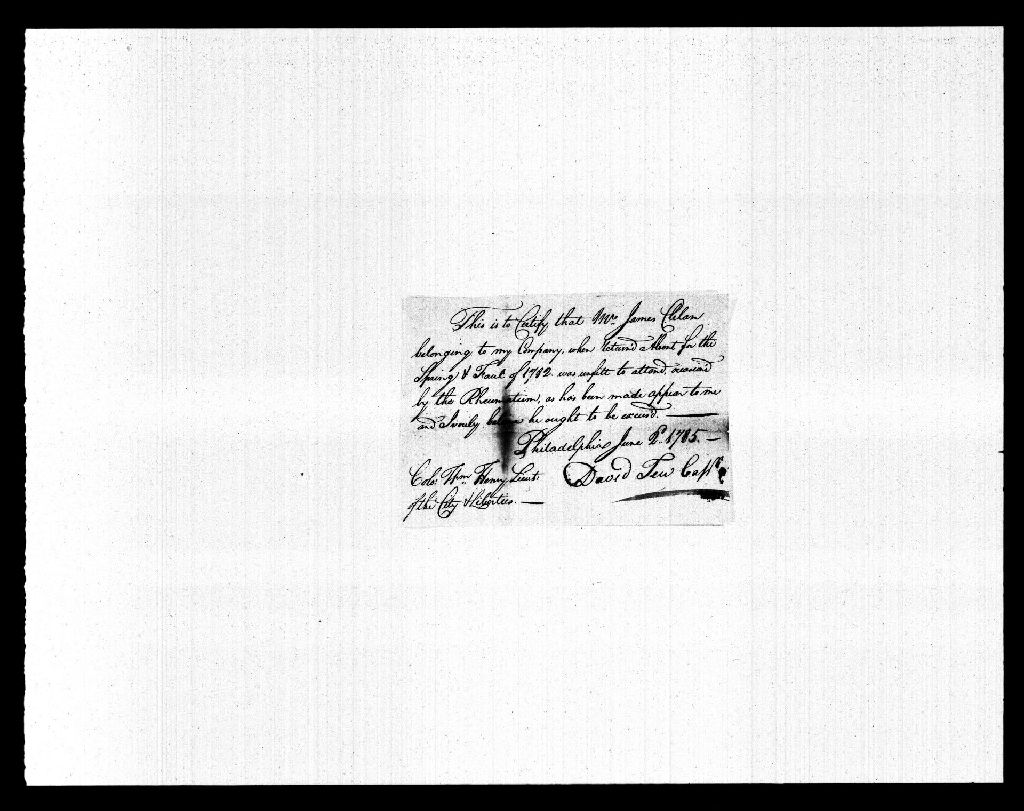 This is to Certify that Mr. James Clelan
belonging to my Company, when returnd absent for the
Spring & Faul of 1782 was unfitt to attend, occasiond
by the Rheumatism, as has been made appear to me
and I verily believe he ought to be excusd.
Philadelphia June 2d. 1785.
Colo. Wm. Henry Lieut. David Tew Capt.
of the City & Liberties.